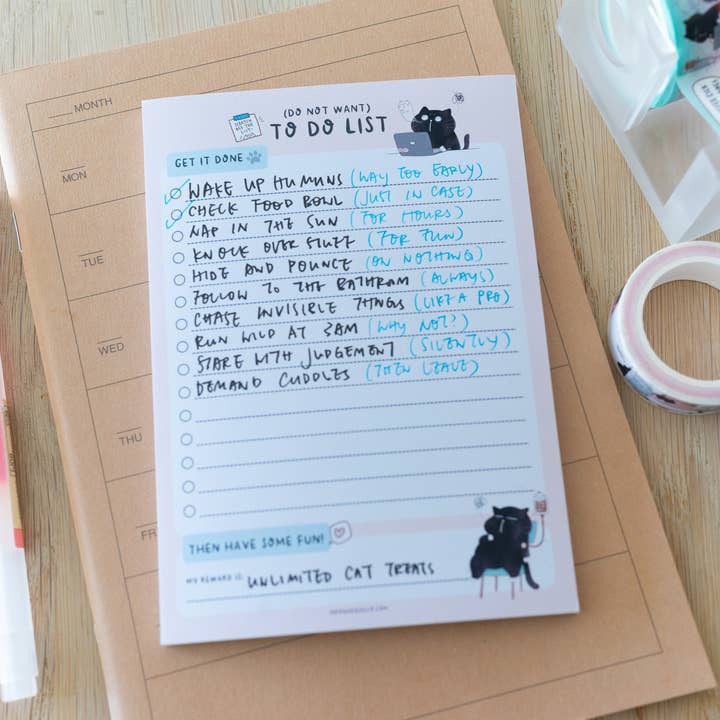 MONTH
MON
TUE
WED
THU
(DO NOT WANT)
TO DO LIST
GET IT DONE
WAKE UP HUMANS (WAY TOO EARLY)
CHECK FOOD BOWL (JUST IN CASE)
NAP IN THE SUN (FOR HOURS)
KNOCK OVER STUFF (FOR FUN)
HIDE AND POUNCE (ON NOTHING)
FOLLOW TO THE BATHROOM (ALWAYS)
CHASE INVISIBLE THINGS (LIKE A PRO)
RUN WILD AT 3AM (WHY NOT?)
STARE WITH JUDGEMENT (SILENTLY)
DEMAND CUDDLES (THEN LEAVE)
THEN HAVE SOME FUN!
MY REWARD IS: UNLIMITED CAT TREATS